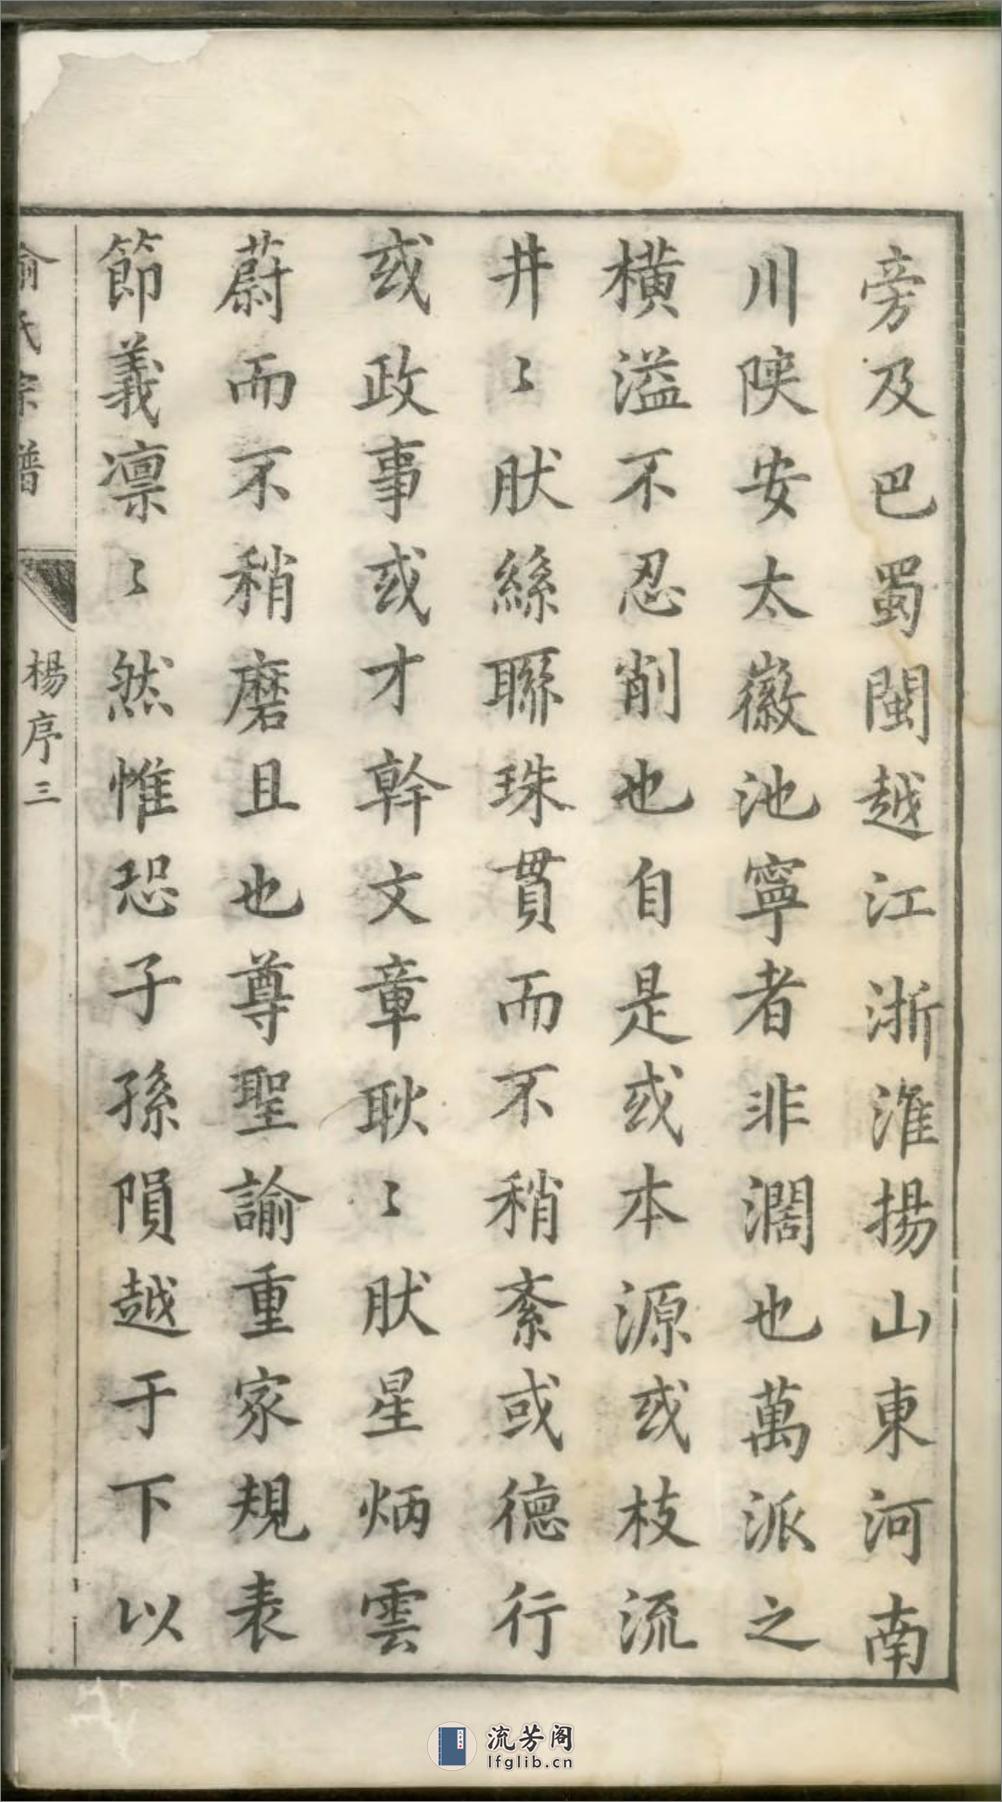 旁及巴蜀閩越江浙淮揚山東河南
川陝安太徽池寧者非濶也萬派之
橫溢不忍削也自是或本源或枝流
井〻肰絲聯珠貫而不稍紊或德行
或政事或才幹文章耿〻肰星炳雲
蔚而不稍磨且也尊聖諭重家規表
節義凛〻然惟恐子孫隕越于下以
俞氏宗譜
楊序三
流芳阁
lfglib.cn